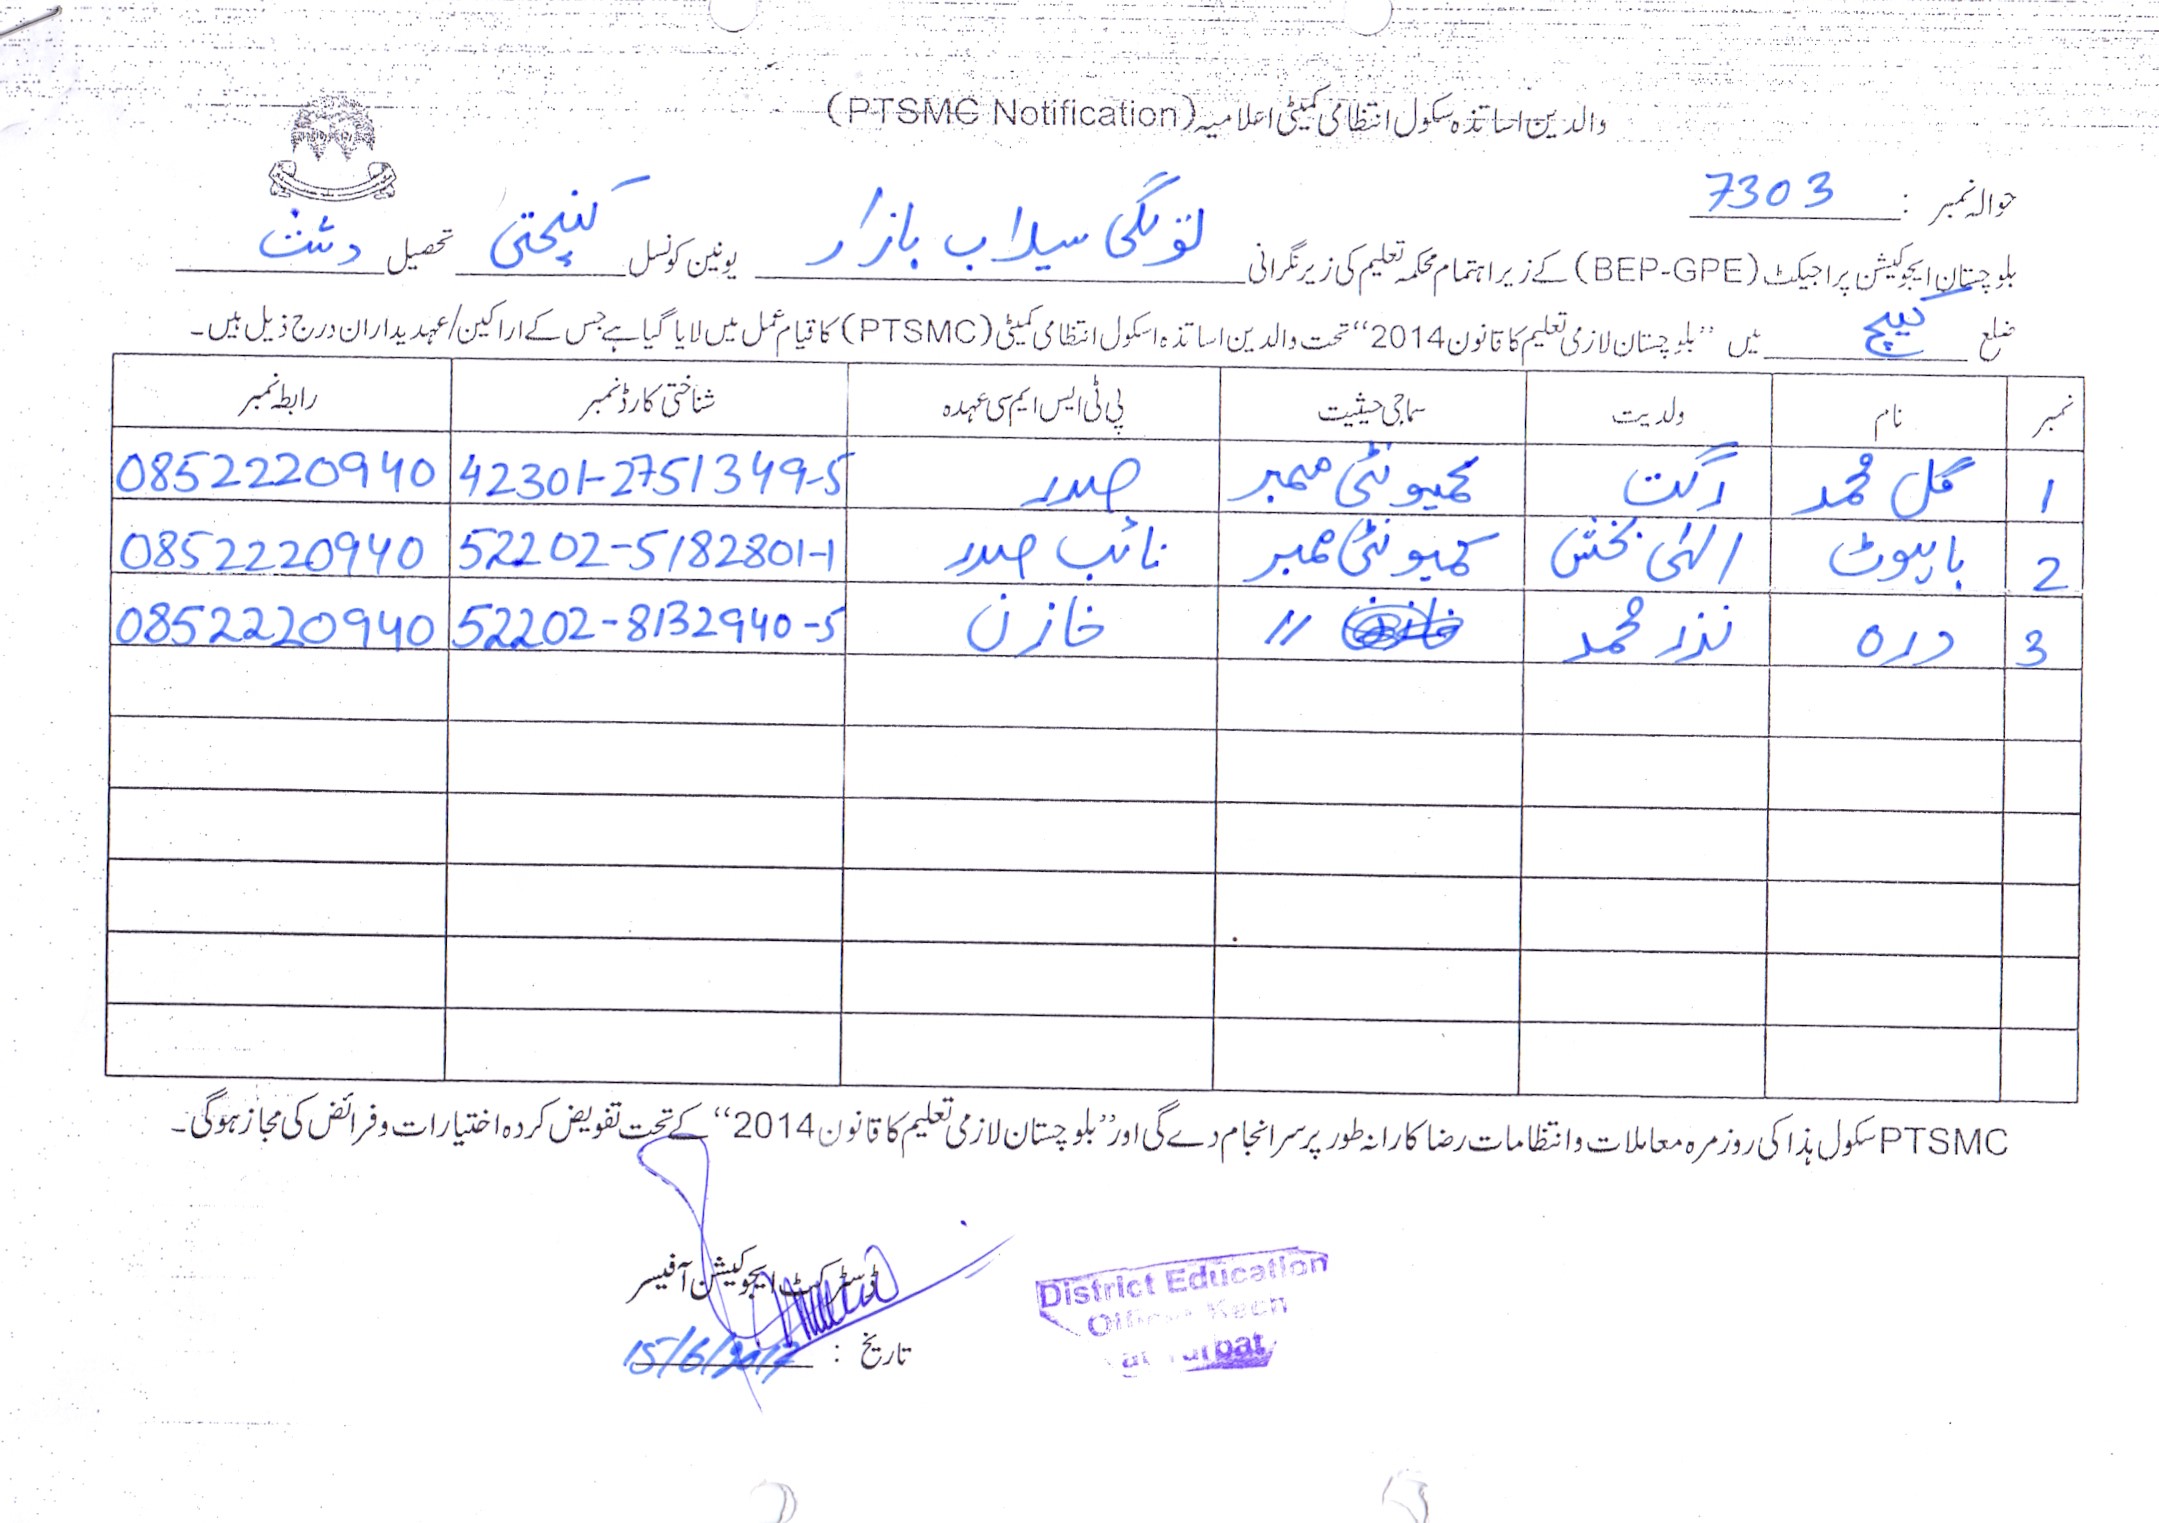 والدین اساتذہ سکول انتظامی کمیٹی اعلامیہ (PTSMC Notification)
حوالہ نمبر : 7303
بلوچستان ایجوکیشن پراجیکٹ (BEP-GPE) کے زیر اہتمام محکمہ تعلیم کی زیر نگرانی سیلاب بازار یونین کونسل تحصیل دشت
ضلع کیچ میں ”بلوچستان لازمی تعلیم کا قانون 2014“ تحت والدین اساتذہ اسکول انتظامی کمیٹی (PTSMC) کا قیام عمل میں لایا گیا ہے جس کے اراکین/عہدیداران درج ذیل ہیں۔
نمبر نام ولدیت سماجی حیثیت پی ٹی ایس ایم سی عہدہ شناختی کارڈ نمبر رابطہ نمبر
1 گل محمد کمیونٹی ممبر صدر 42301-2751349-5 0852220940
2 الٰہی بخش کمیونٹی ممبر نائب صدر 52202-5182801-1 0852220940
3 درہ نذر محمد // خازن 52202-8132940-5 0852220940
PTSMC سکول ہذا کی روز مرہ معاملات و انتظامات رضا کارانہ طور پر سر انجام دے گی اور ”بلوچستان لازمی تعلیم کا قانون 2014“ کے تحت تفویض کردہ اختیارات و فرائض کی مجاز ہوگی۔
ڈسٹرکٹ ایجوکیشن آفیسر
تاریخ : 15/6/2017
District Education
Officer Kech
at Turbat